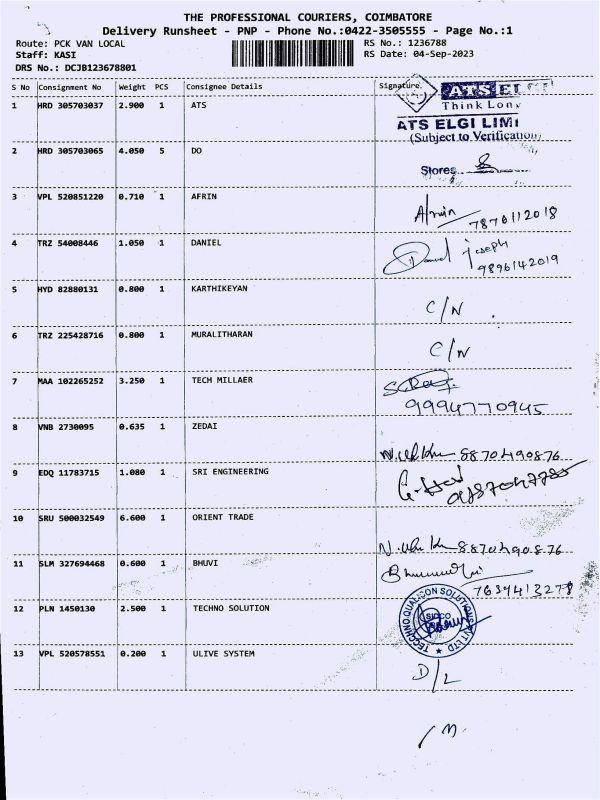 THE PROFESSIONAL COURIERS, COIMBATORE
Delivery Runsheet - PNP - Phone No.:0422-3505555 - Page No.:1
Route: PCK VAN LOCAL RS No.: 1236788
Staff: KASI RS Date: 04-Sep-2023
DRS No.: DCJB123678801
S No Consignment No Weight PCS Consignee Details Signature
1 HRD 305703037 2.900 1 ATS ATS ELGI
Think Lon
ATS ELGI LIMI
(Subject to Verification)
2 HRD 305703065 4.050 5 DO
Stores
3 VPL 520851220 0.710 1 AFRIN
7876112018
4 TRZ 54008446 1.050 1 DANIEL Daniel joseph
9896142019
5 HYD 82880131 0.800 1 KARTHIKEYAN
C/N
6 TRZ 225428716 0.800 1 MURALITHARAN
C/N
7 MAA 102265252 3.250 1 TECH MILLAER
9994770945
8 VNB 2730095 0.635 1 ZEDAI
8870490876
9 EDQ 11783715 1.080 1 SRI ENGINEERING
10 SRU 500032549 6.600 1 ORIENT TRADE
8870490876
11 SLM 327694468 0.600 1 BHUVI
7639413278
12 PLN 1450130 2.500 1 TECHNO SOLUTION
TECHNO QUALCON SOLUTIONS PVT LTD
SIDCO
13 VPL 520578551 0.200 1 ULIVE SYSTEM
D/L